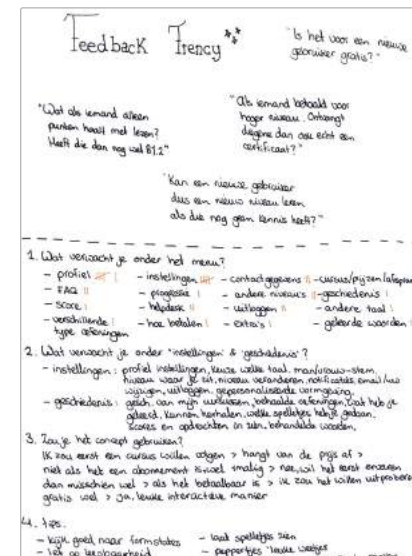 Feedback Trency
"Is het voor een nieuwe
gebruiker gratis?"
"Wat als iemand alleen
punten haalt met lezen?
Heeft die dan nog wel B1.2"
"Als iemand betaald voor
hoger niveau. Ontvangt
diegene dan ook echt een
certificaat?"
"Kan een nieuwe gebruiker
dus een nieuw niveau leren
als die nog geen kennis heeft?"
1. Wat verwacht je onder het menu?
- profiel - instellingen - contactgegevens - cursus/prijzen/afspra
- FAQ - progressie - andere niveau's - geschiedenis
- score - helpdesk - uitloggen - andere taal
- verschillende - hoe betalen - extra's - geleerde woorden
type oefeningen
2. Wat verwacht je onder 'instellingen' & 'geschiedenis'?
- instellingen: profiel instellingen, keuze welke taal, man/vrouw-stem,
niveau waar je zit, niveau veranderen, notificaties, email/
wijzigen, uitloggen, gepersonaliseerde vormgeving.
- geschiedenis: gesch. van mijn, behaalde oefeningen, wat heb je
geleerd, kunnen herhalen, welke spelletjes heb je gedaan,
scores en opdrachten in zien, behandelde woorden.
3. Zou je het concept gebruiken?
Ik zou eerst een cursus willen volgen > hangt van de prijs af >
niet als het een abonnement is, wel 1malig > nee, wil het eerst ervaren
dan misschien wel > als het betaalbaar is > ik zou het willen uitproberen
gratis wel > ja, leuke interactieve manier
4. tips.
- kijk goed naar formstates - laat spelletjes zien
- let op leesbaarheid - 'leuke weetjes'